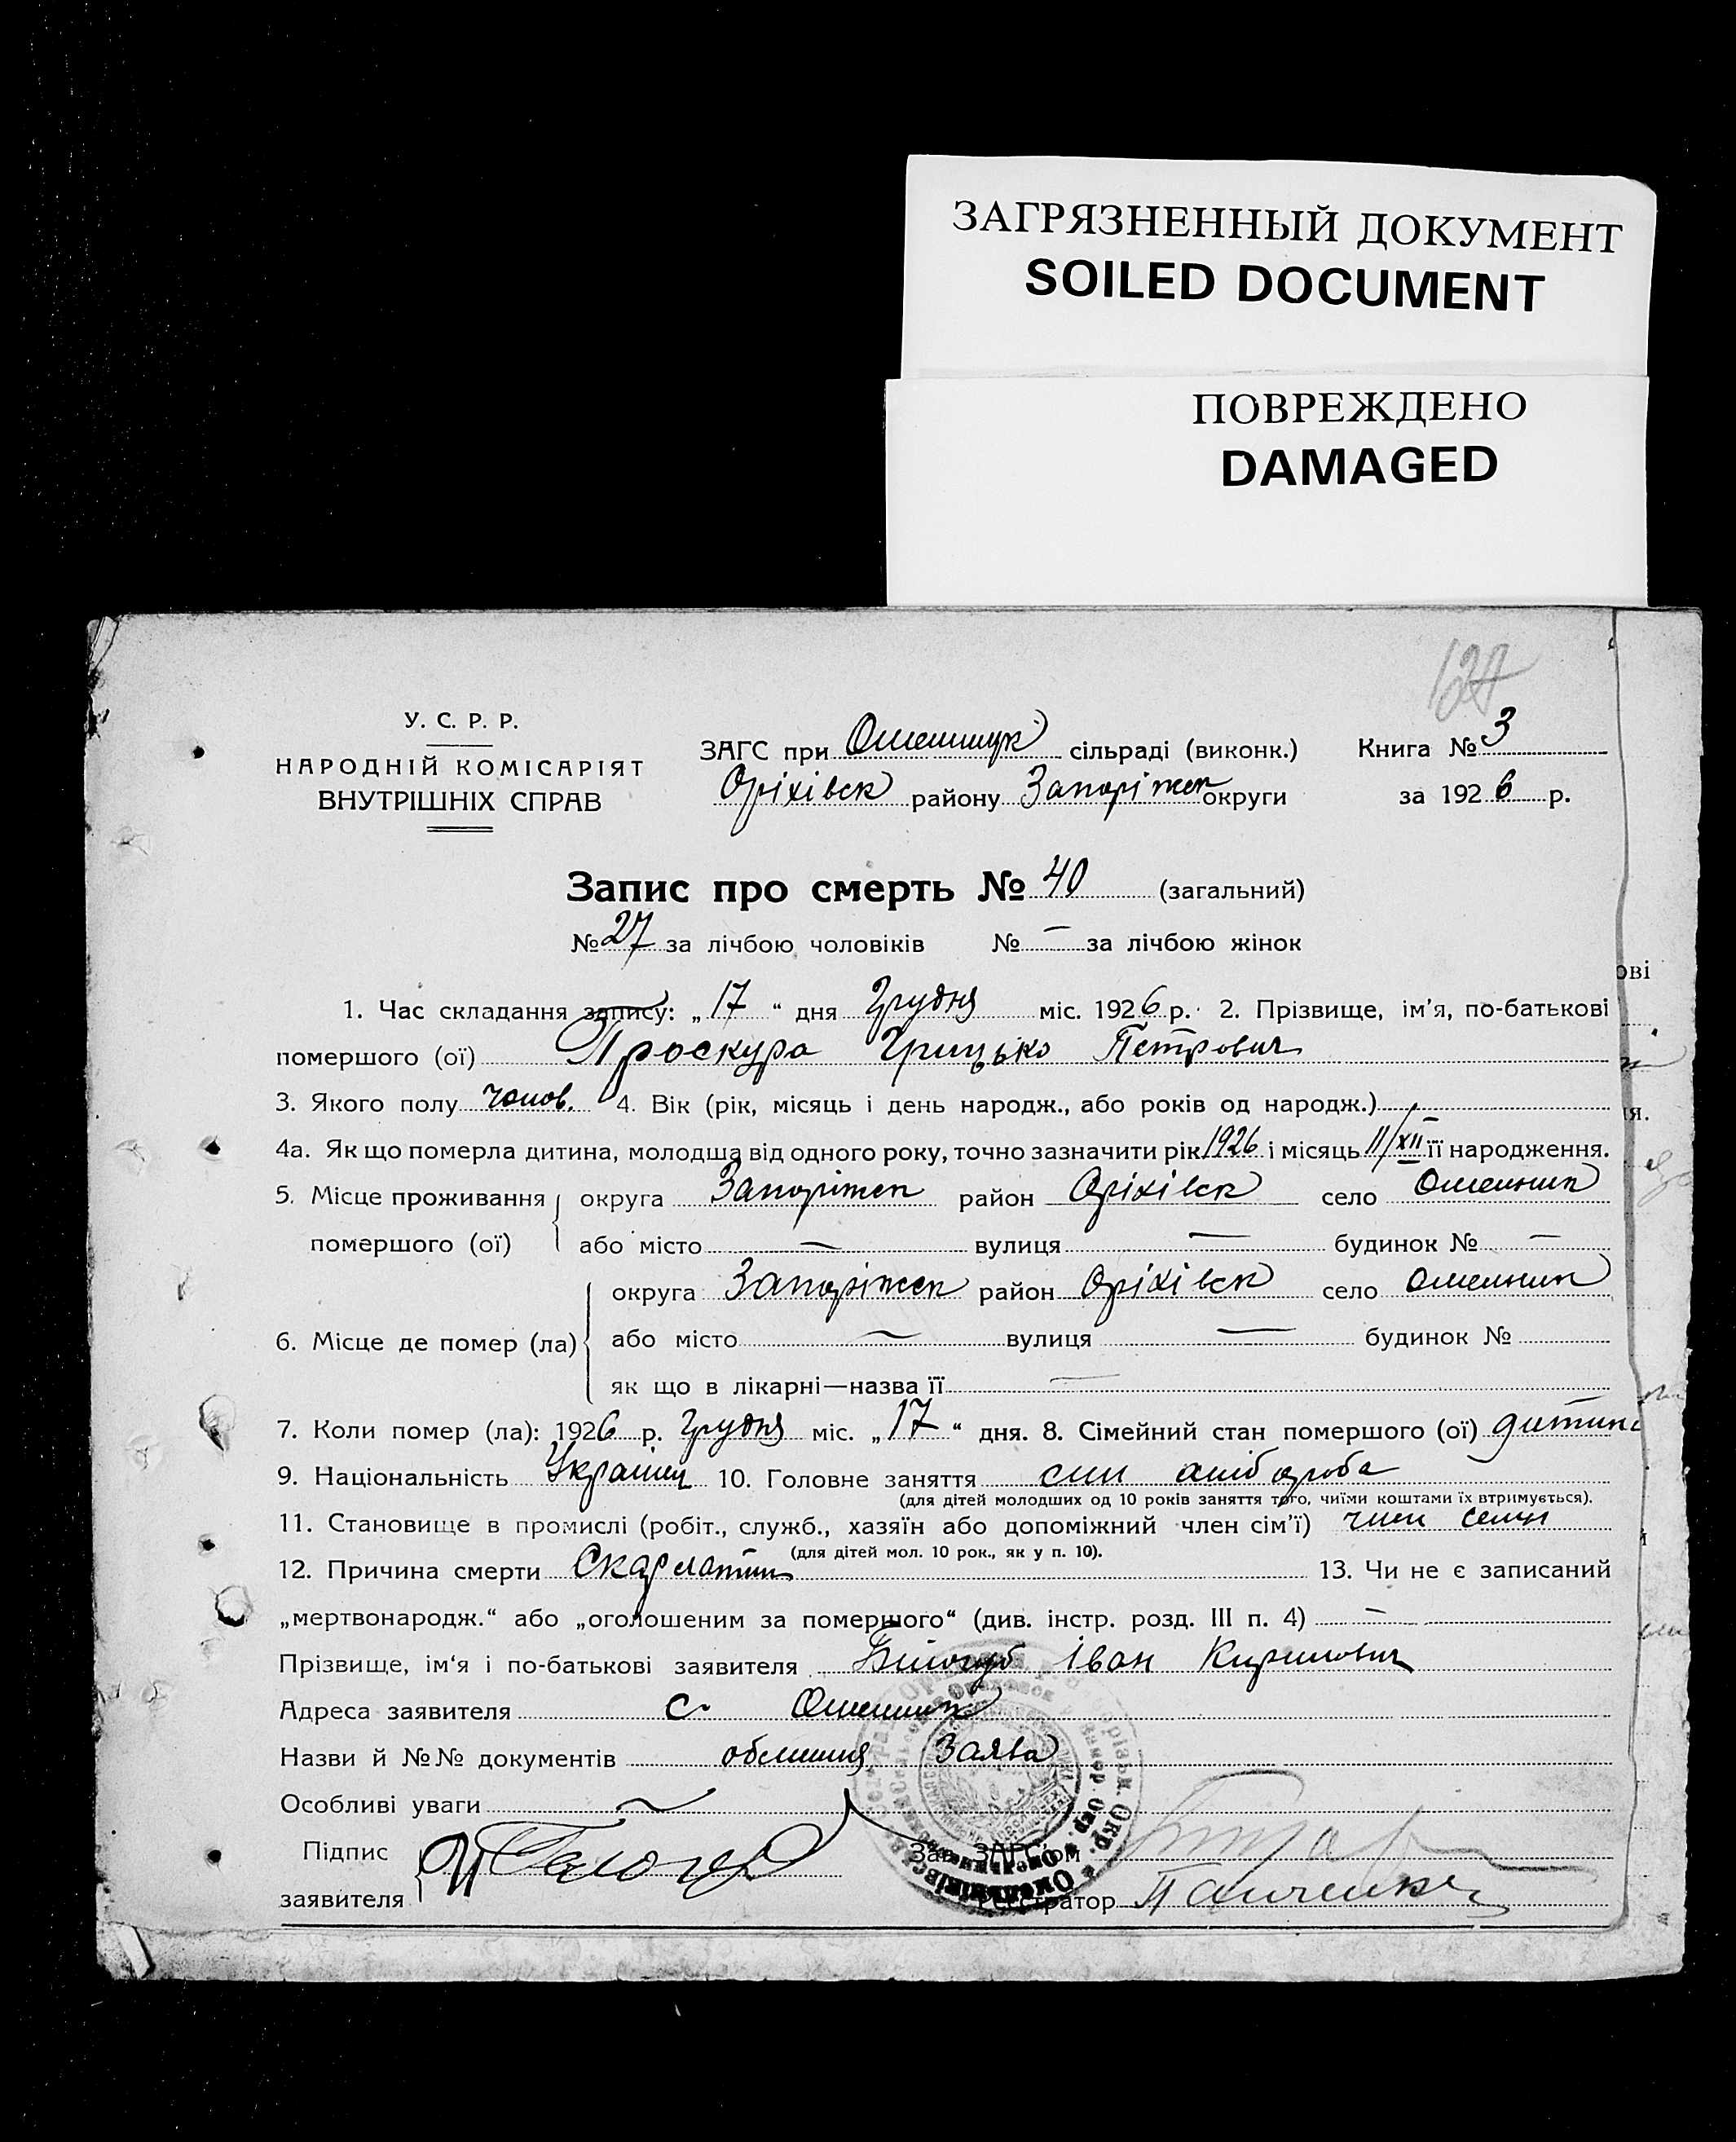 ЗАГРЯЗНЕННЫЙ ДОКУМЕНТ
SOILED DOCUMENT
ПОВРЕЖДЕНО
DAMAGED
127
У. С. Р. Р.
НАРОДНІЙ КОМІСАРІЯТ
ВНУТРІШНІХ СПРАВ
ЗАГС при Омельницк сільраді (виконк.)
Оріхівск району Запоріжск округи
Книга № 3
за 1926 р.
Запис про смерть № 40 (загальний)
№ 27 за лічбою чоловіків № — за лічбою жінок
1. Час складання запису: „17“ дня Грудня міс. 1926 р. 2. Прізвище, ім’я, по-батькові
помершого (ої) Проскура Грицько Петрович
3. Якого полу чолов. 4. Вік (рік, місяць і день народж., або років од народж.)
4а. Як що померла дитина, молодша від одного року, точно зазначити рік 1926 і місяць 11/XII її народження.
5. Місце проживання помершого (ої) округа Запоріжск район Оріхівск село Омельник
або місто — вулиця — будинок № —
6. Місце де помер (ла) округа Запоріжск район Оріхівск село Омельник
або місто — вулиця — будинок №
як що в лікарні—назва її —
7. Коли помер (ла): 1926 р. Грудня міс. „17“ дня. 8. Сімейний стан помершого (ої) дитина
9. Національність Українец 10. Головне заняття син хлібороба
(для дітей молодших од 10 років заняття того, чиїми коштами їх втримується).
11. Становище в промислі (робіт., служб., хазяїн або допоміжний член сім’ї) член семьи
(для дітей мол. 10 рок., як у п. 10).
12. Причина смерти Скарлатина 13. Чи не є записаний
„мертвонародж.“ або „оголошеним за помершого“ (див. інстр. розд. III п. 4) —
Прізвище, ім‘я і по-батькові заявителя Білогуб Іван Кирилович
Адреса заявителя с. Омельник
Назви й №№ документів Заява
Особливі уваги —
Підпис заявителя
Зав. ЗАГС’ом
Реєстратор Панченко